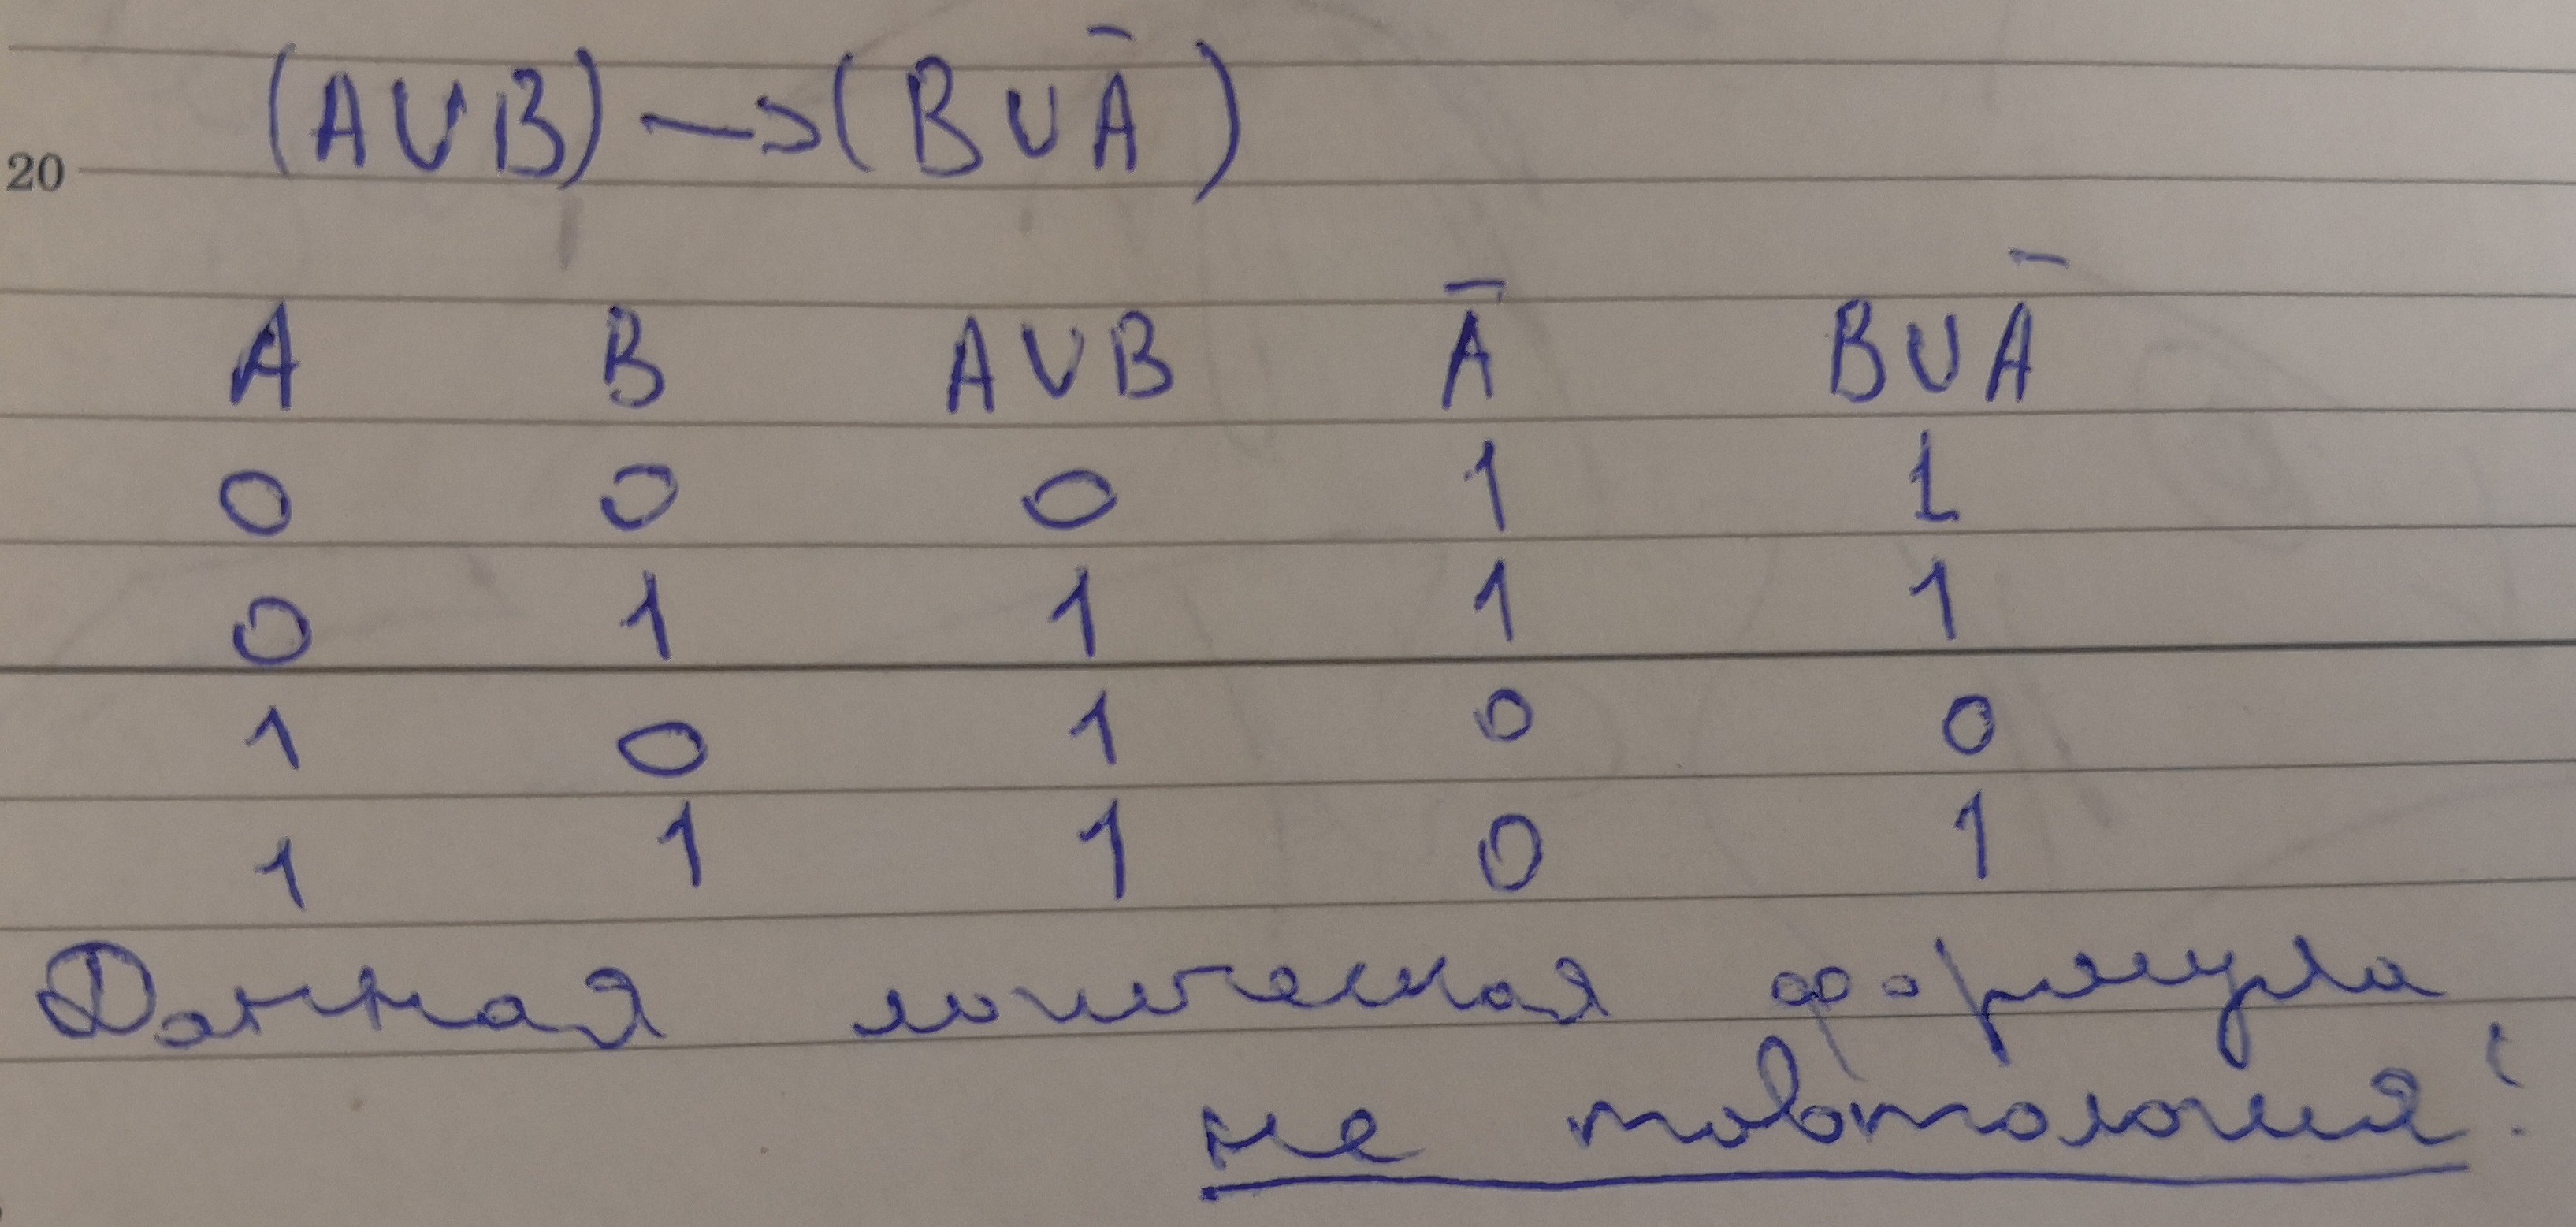 (A∪B)→(B∪Ā)
20
A B A∪B Ā B∪Ā
0 0 0 1 1
0 1 1 1 1
1 0 1 0 0
1 1 1 0 1
Данная логическая формула
не тавтология!